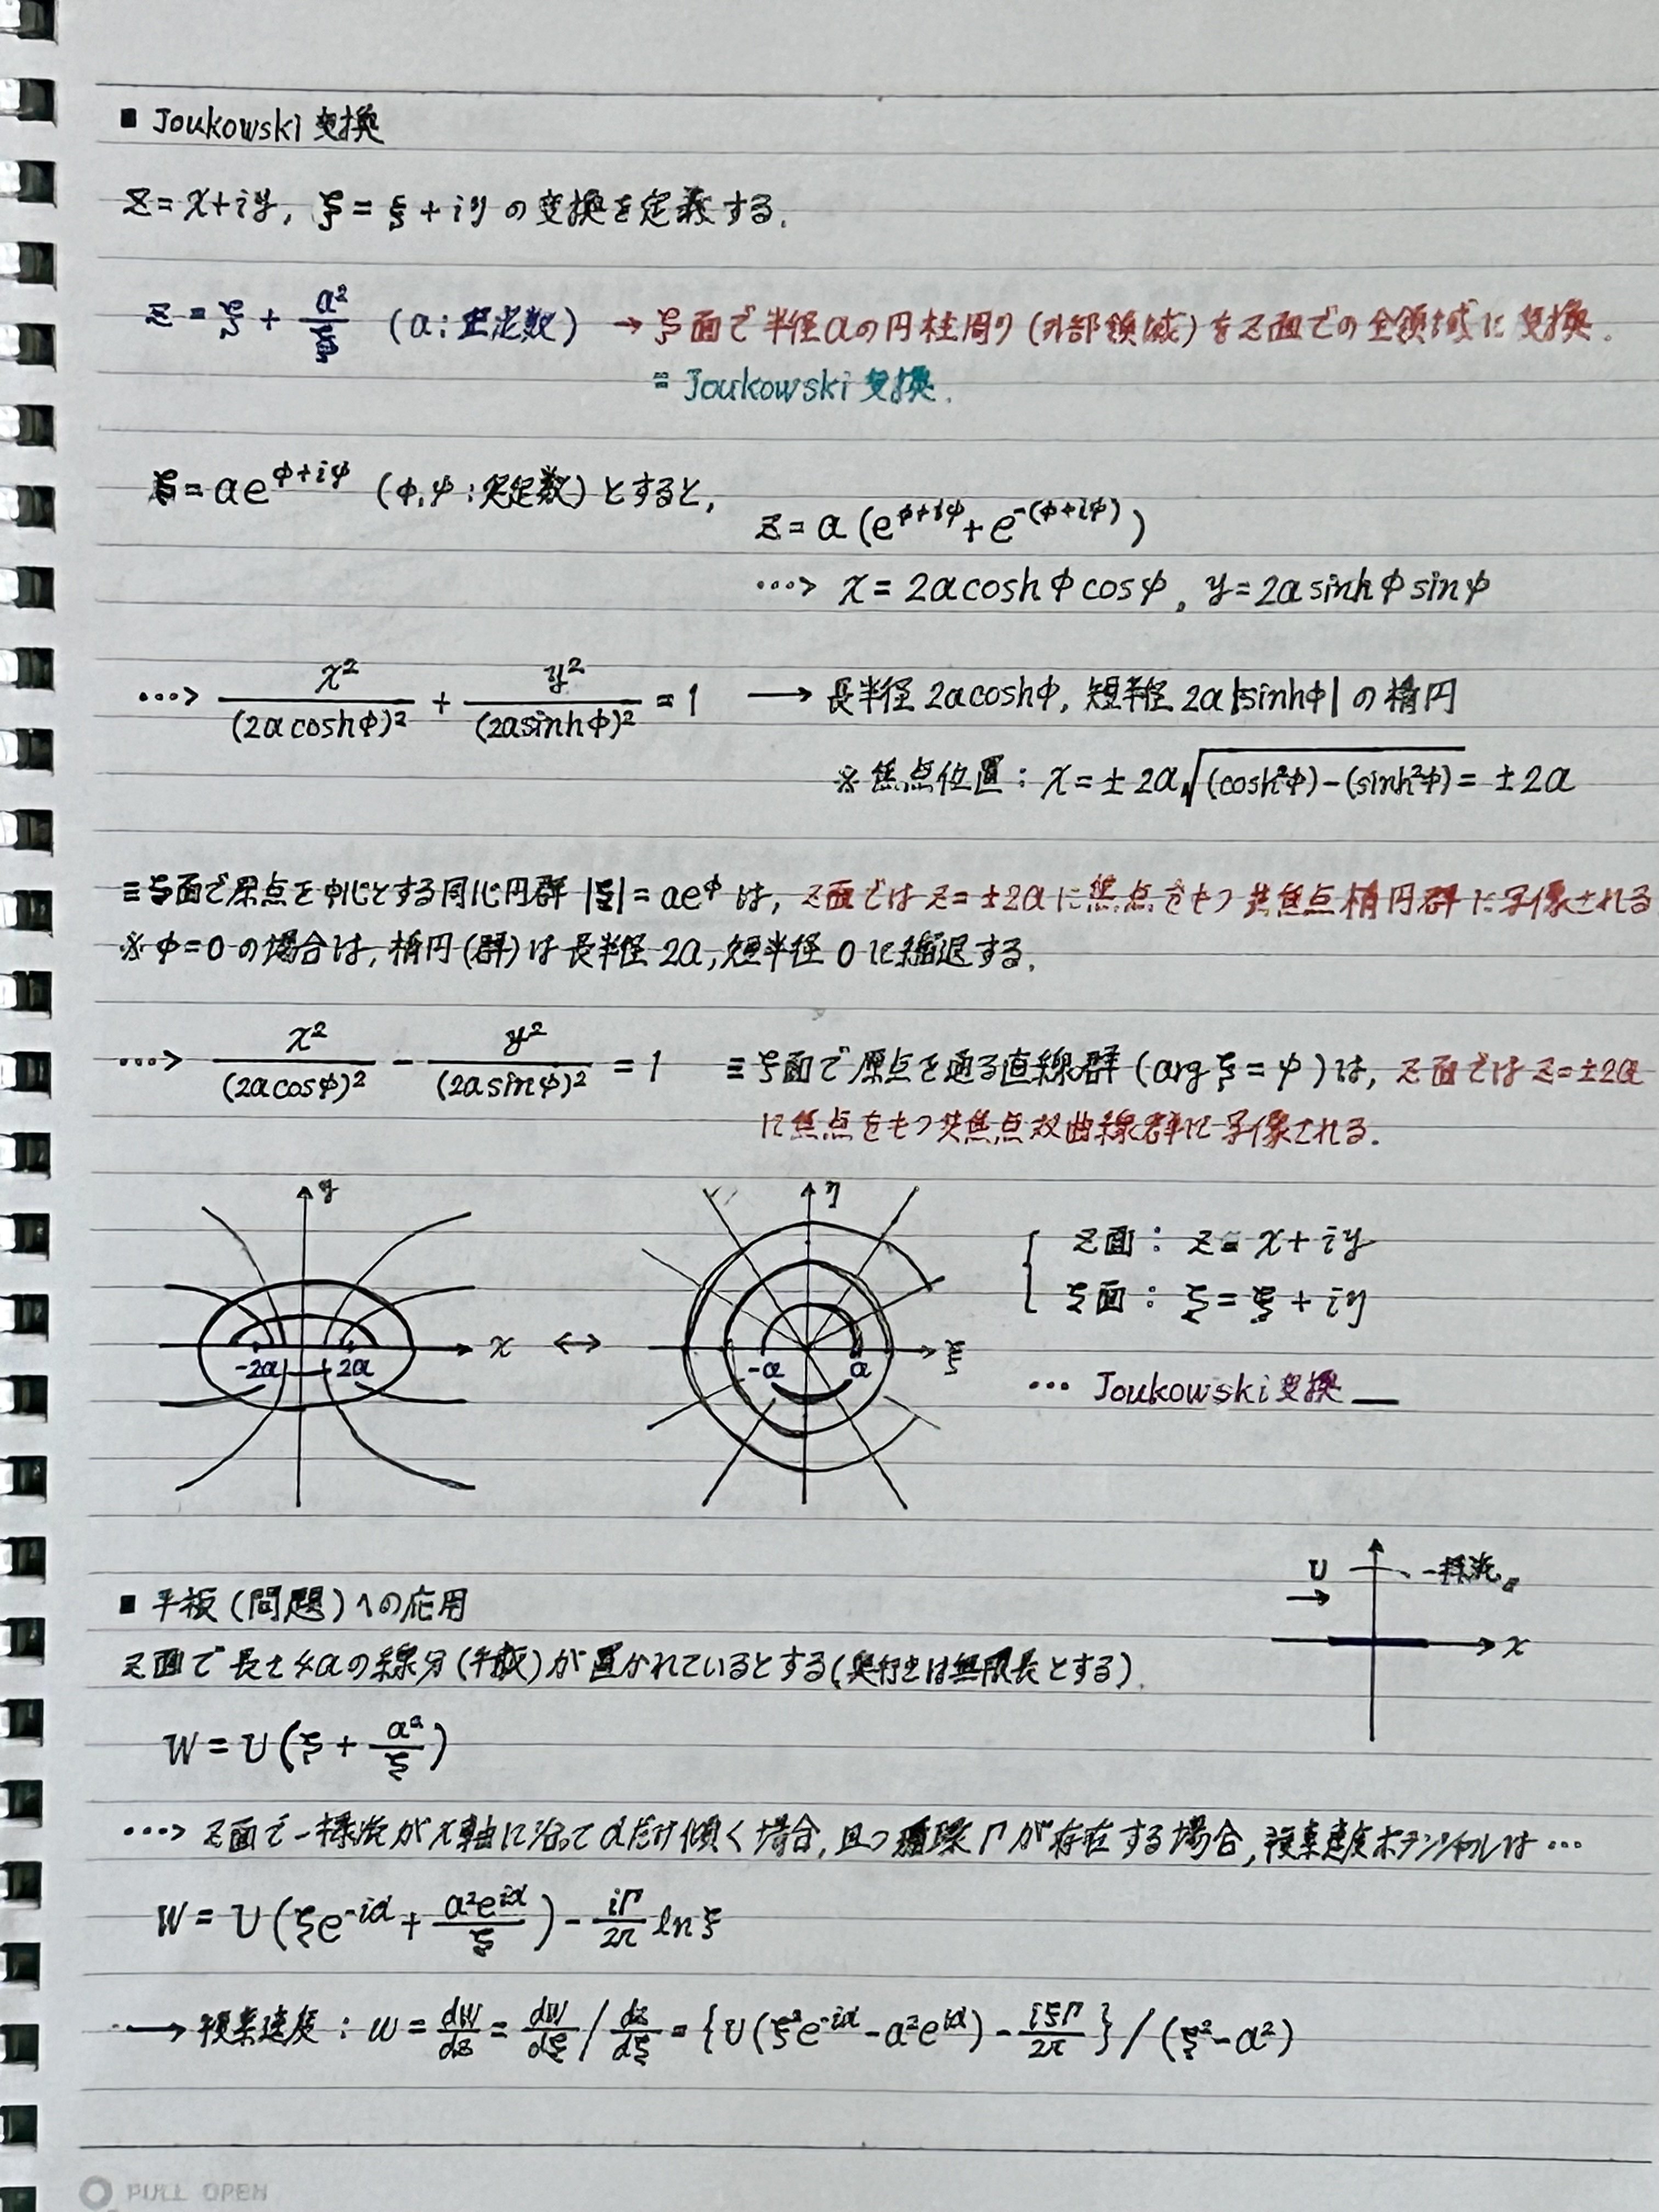 ■ Joukowski 変換
z = x+iy, ζ = ξ + iη の変換を定義する.
z = ζ + a²/ζ (a : 正定数) → ζ面で半径aの円柱周り (外部領域) を z面での全領域に変換.
= Joukowski 変換.
ζ = ae^(φ+iψ) (φ,ψ : 実定数) とすると,
z = a (e^(φ+iψ) + e^(-(φ+iψ)))
…> x = 2a cosh φ cos ψ, y = 2a sinh φ sin ψ
…> x²/(2a cosh φ)² + y²/(2a sinh φ)² = 1 → 長半径 2a cosh φ, 短半径 2a |sinh φ| の楕円
※ 焦点位置 : x = ± 2a √((cosh²φ) - (sinh²φ)) = ± 2a
≡ ζ面で原点を中心とする同心円群 |ζ| = ae^φ は, z面では z = ±2a に焦点をもつ共焦点楕円群に写像される
※ φ = 0 の場合は, 楕円(群)は長半径 2a, 短半径 0 に縮退する.
…> x²/(2a cos ψ)² - y²/(2a sin ψ)² = 1 ≡ ζ面で原点を通る直線群 (arg ζ = ψ) は, z面では z = ±2a
に焦点をもつ共焦点双曲線群に写像される.
y
x
-2a
2a
↔
η
ξ
-a
a
z面 : z = x + iy
ζ面 : ζ = ξ + iη
… Joukowski 変換
■ 平板 (問題) への応用
U →
一様流
x
z面で長さ4aの線分 (平板) が置かれているとする (奥行きは無限長とする).
W = U (ζ + a²/ζ)
…> z面で一様流がx軸に沿って αだけ傾く場合, 且つ循環Γが存在する場合, 複素速度ポテンシャルは…
W = U (ζe^(-iα) + a²e^(iα)/ζ) - iΓ/2π ln ζ
→ 複素速度 : w = dW/dz = dW/dζ / dz/dζ = {U (ζ²e^(-iα) - a²e^(iα)) - iζΓ/2π} / (ζ² - a²)
PULL OPEN